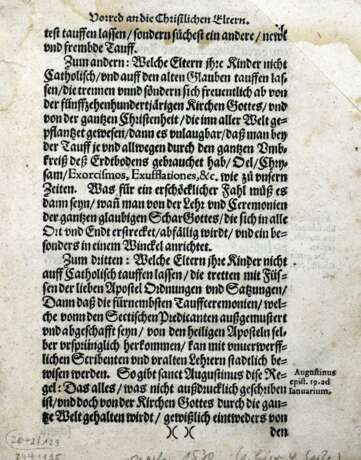 Vorred an die Christlichen Eltern.
test tauffen lassen/ sondern süchest ein andere/ newe
vnd frembde Tauff.
Zum andern: Welche Eltern jhre Kinder nicht
Catholisch/ vnd auff den alten Glauben tauffen las-
sen/ die trennen vnnd söndern sich freuentlich ab von
der fünffzehenhundertjärigen Kirchen Gottes/ vnd
von der gantzen Christenheit/ die inn aller Welt ge-
pflantzet gewesen/ dann es vnlaugbar/ daß man bey
der Tauff je vnd allwegen durch den gantzen Vmb-
kreiß deß Erdbodens gebrauchet hab/ Oel/ Chry-
sam/ Exorcismos, Exufflationes, &c. wie zů vnsern
Zeiten. Was für ein erschöcklicher Fahl müß es
dann seyn/ wañ man von der Lehr vnd Ceremonien
der gantzen glaubigen Schar Gottes/ die sich in alle
Ort vnd Endt erstrecket/ abfällig wirdt/ vnd ein be-
sonders in einem Winckel anrichtet.
Zum dritten: Welche Eltern jhre Kinder nicht
auff Catholisch tauffen lassen/ die tretten mit Füs-
sen der lieben Apostel Ordnungen vnd Satzungen/
Dann daß die fürnembsten Taufceremonien/ wel-
che vonn den Sectischen Predicanten außgemustert
vnd abgeschafft seyn/ von den heiligen Aposteln sel-
ber vrsprünglich herkommen/ kan mit vnuerwerff-
lichen Scribenten vnd vralten Lehrern stadtlich be-
wisen werden. So gibt sanct Augustinus dise Re-
gel: Das alles/ was nicht außdrucklich geschriben
ist/ vnd doch von der Kirchen Gottes durch die gan-
tze Welt gehalten wirdt/ gewißlich eintweders von
)( )(
den
Augustinus
epist. 19. ad
Ianuarium.